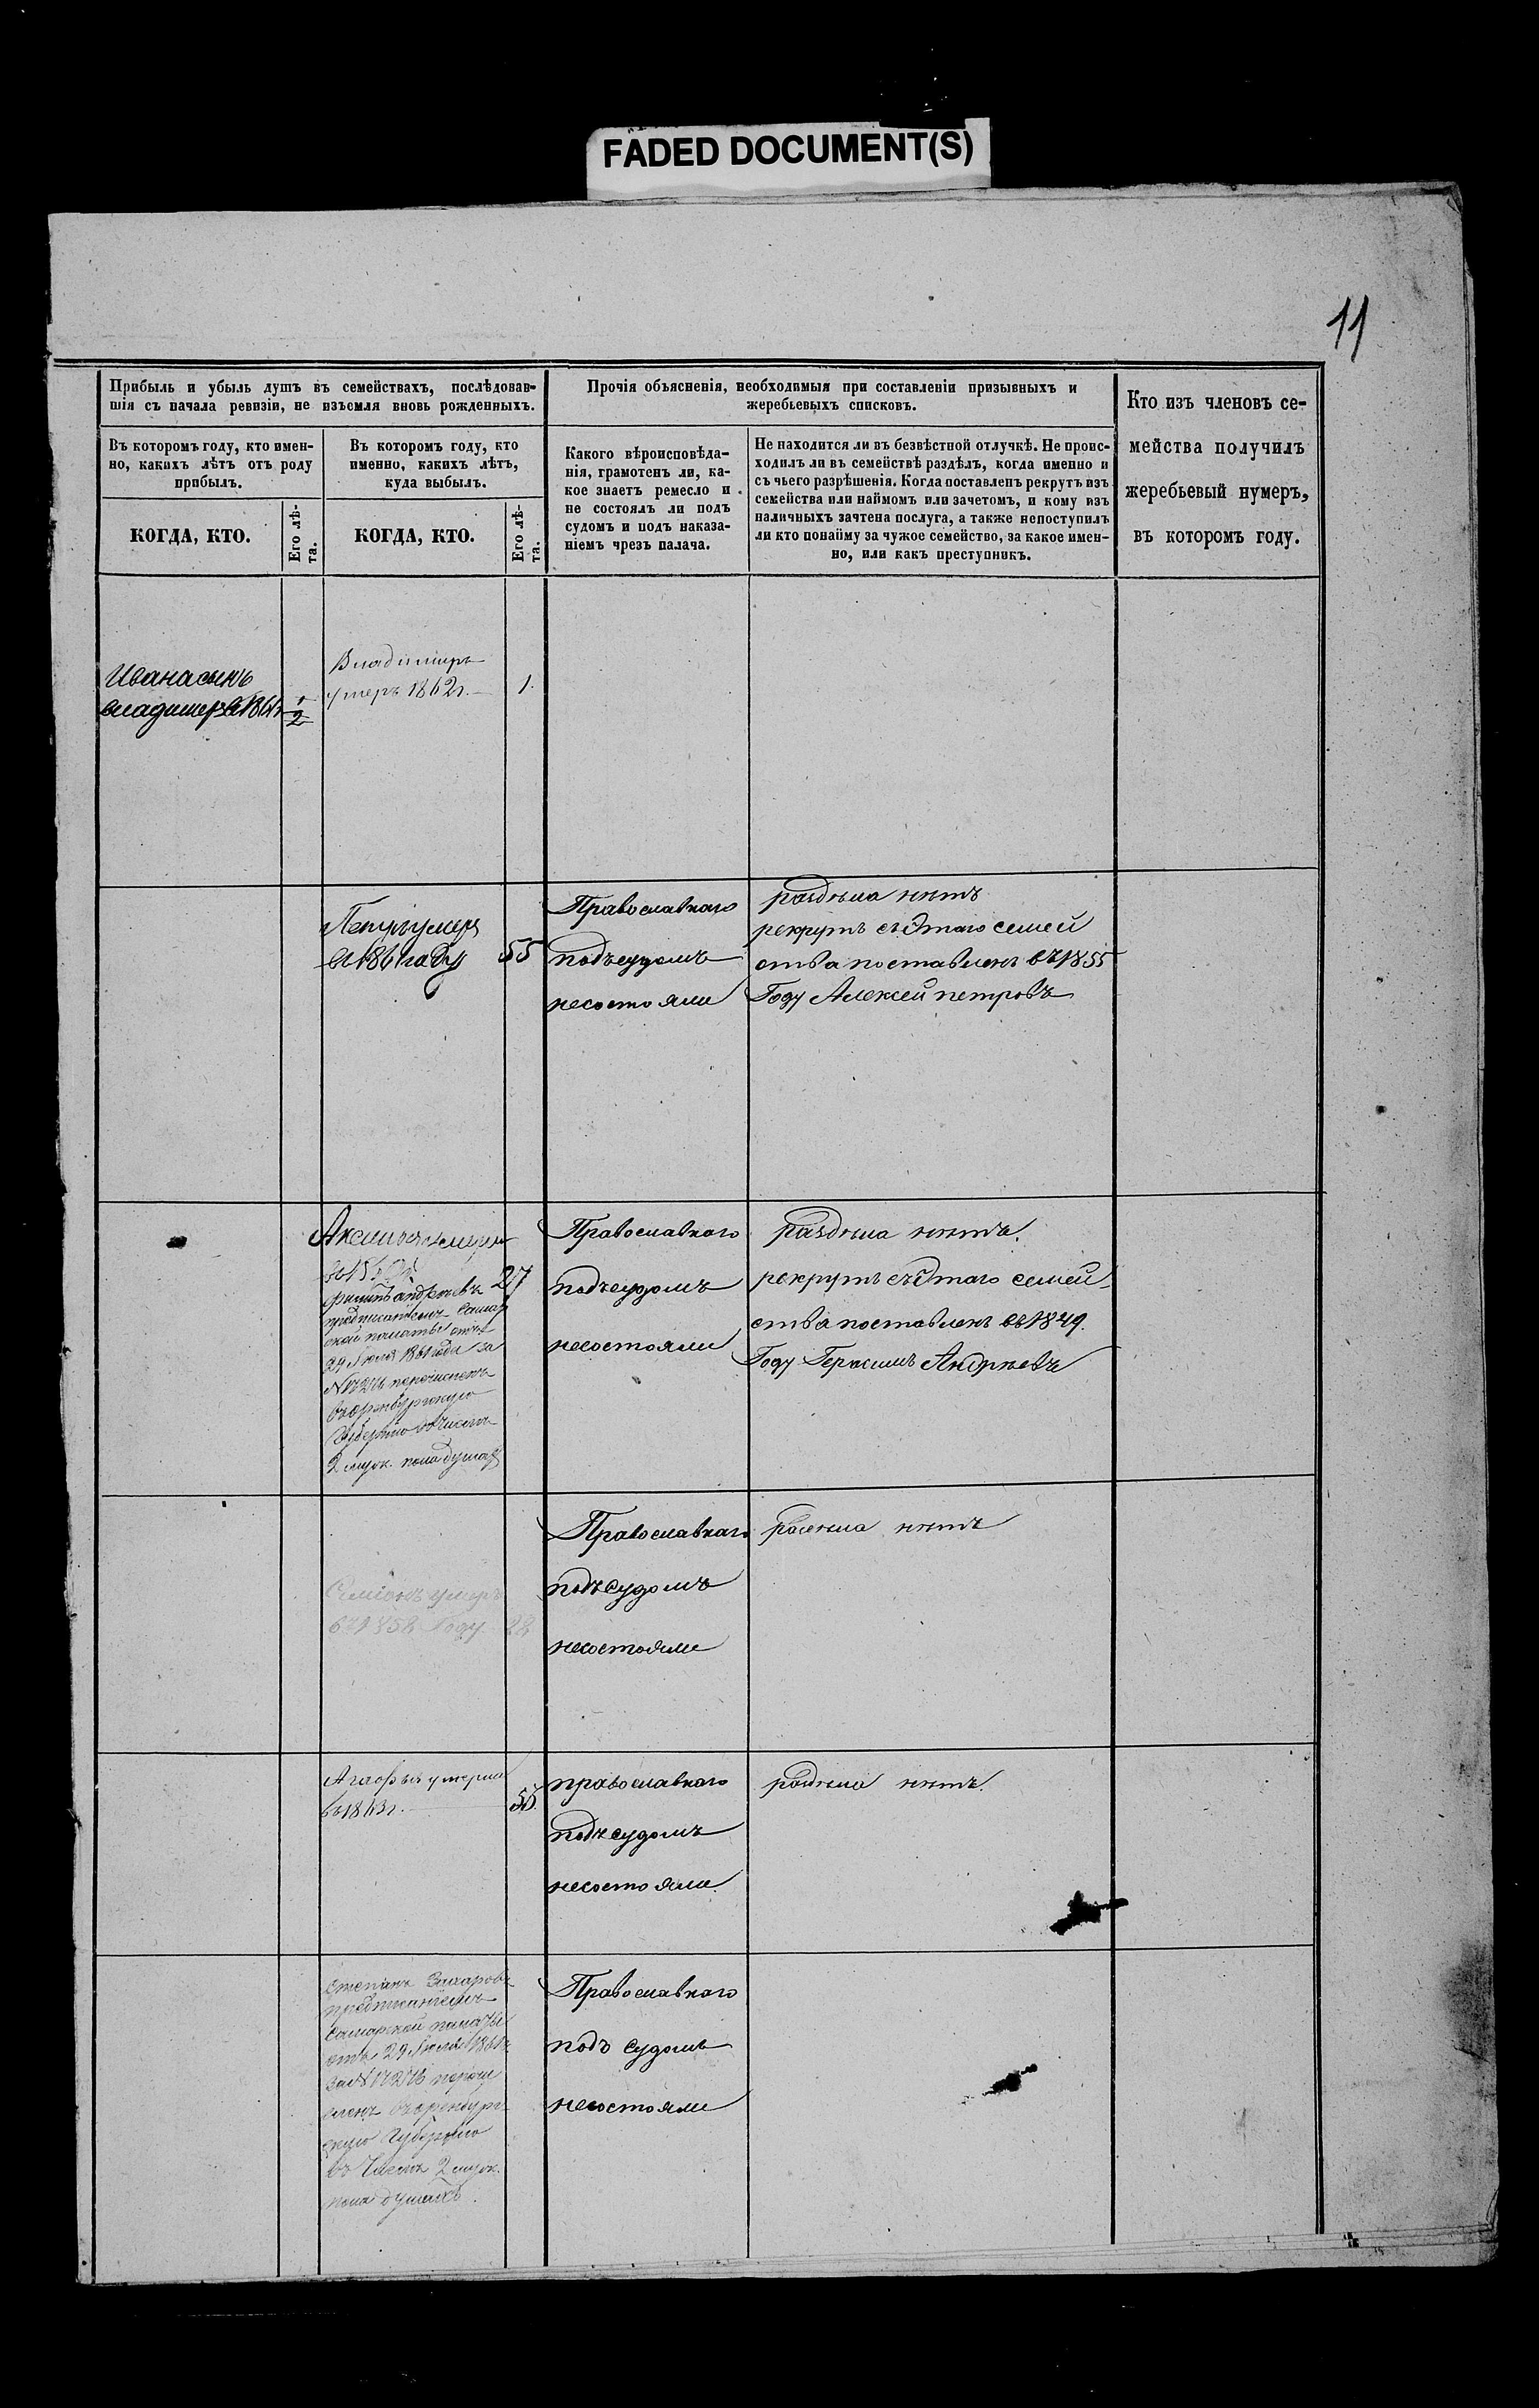 FADED DOCUMENT(S)
11
Прибыль и убыль душъ въ семействахъ, послѣдовав-
шія съ начала ревизіи, не изъемля вновь рожденныхъ.
Прочія объясненія, необходимыя при составленіи призывныхъ и
жеребьевыхъ списковъ.
Кто изъ членовъ се-
мейства получилъ
жеребьевый нумеръ,
въ которомъ году.
Въ которомъ году, кто имен-
но, какихъ лѣтъ отъ роду
прибылъ.
Въ которомъ году, кто
именно, какихъ лѣтъ,
куда выбылъ.
Какого вѣроисповѣда-
нія, грамотенъ ли, ка-
кое знаетъ ремесло и
не состоялъ ли подъ
судомъ и подъ наказа-
ніемъ чрезъ палача.
Не находится ли въ безвѣстной отлучкѣ. Не проис-
ходилъ ли въ семействѣ раздѣлъ, когда именно и
съ чьего разрѣшенія. Когда поставленъ рекрутъ изъ
семейства или наймомъ или зачетомъ, и кому изъ
наличныхъ зачтена послуга, а также непоступилъ
ли кто понайму за чужое семейство, за какое имен-
но, или какъ преступникъ.
КОГДА, КТО.
Его лѣ-
та.
КОГДА, КТО.
Его лѣ-
та.
Ивана сынъ
владимеръ 1/2
Владимиръ
умеръ 1862г. 1.
Петръ умеръ
в 1861 году 55
Православнаго
подъ судомъ
несостояли
раздела нѣтъ
рекрутъ съ Этаго семей
ства поставленъ въ 1855
Году Алексей петровъ
27
андрѣевъ
предписаніемъ Самар
ской палаты отъ
29 Июля 1861 года за
перечисленъ
в оренбургскую
Губернію въ числѣ
2 муж. пола душах
Православнаго
подъ судомъ
несостояли
раздела нѣтъ.
рекрутъ съ Этаго семей
ства поставленъ въ 1849.
Году Герасимъ Андрѣевъ
Семіонъ умеръ
въ 1858 Году 22
Православнаго
подъ судомъ
несостояли
нѣтъ
Агафья умерла
въ 1863г. 55.
православнаго
подъ судомъ
несостояли.
раздела нѣтъ.
степанъ Захаровъ
предписаніемъ
самарской палаты
отъ 29 Июля 1861г.
перечи
сленъ в оренбург
скую Губернію
въ Числѣ 2 муж.
пола душахъ.
Православнаго
подъ судомъ
несостояли